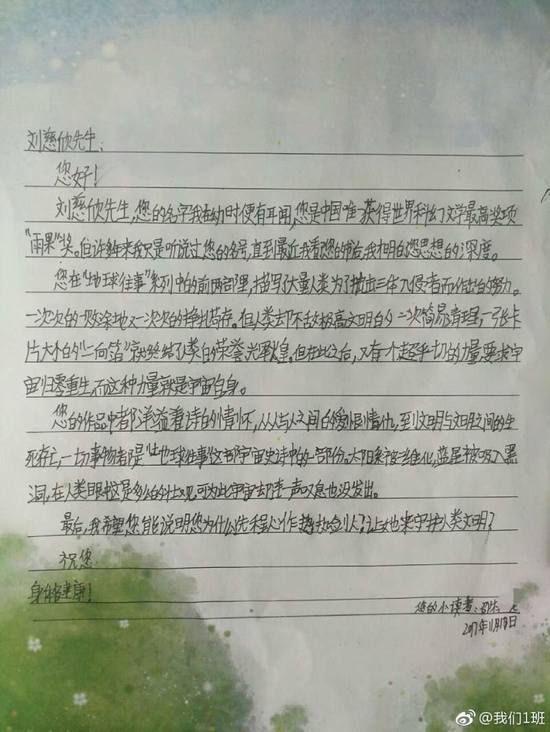 刘慈欣先生:
您好!
刘慈欣先生,您的名字我在幼时便有耳闻,您是中国唯一获得世界科幻文学最高奖项
"雨果"奖。但许多年来我只是听说过您的名号,直到最近我看您的作品,我才明白您思想的深度。
您在"地球往事"系列中的前两部里,描写了大量人类为了抗击三体入侵者而作出的努力。
一次次的一败涂地又一次次的挣扎存。但人类却不敌极高文明的一次简易清理,一张卡
片大小的"二向箔"就终结了人类的荣誉光辉。但在此之后,又有一个超乎一切的力量要求宇
宙归零重生,而这种力量就是宇宙自身。
您的作品中都洋溢着诗的情怀,从人与人之间的爱恨情仇,到文明与文明之间的生
死存亡,一切事物都是"地球往事"这部宇宙史诗中的一部份。太阳系被二维化,蓝星被吸入黑
洞,在人类眼中是多么的壮观,可为此宇宙却连一声叹息也没发出。
最后,我希望您能说明您为什么选程心作执剑人?让她来守护人类文明?
祝您
身体健康!
您的小读者:
2017年11月18日
@我们1班